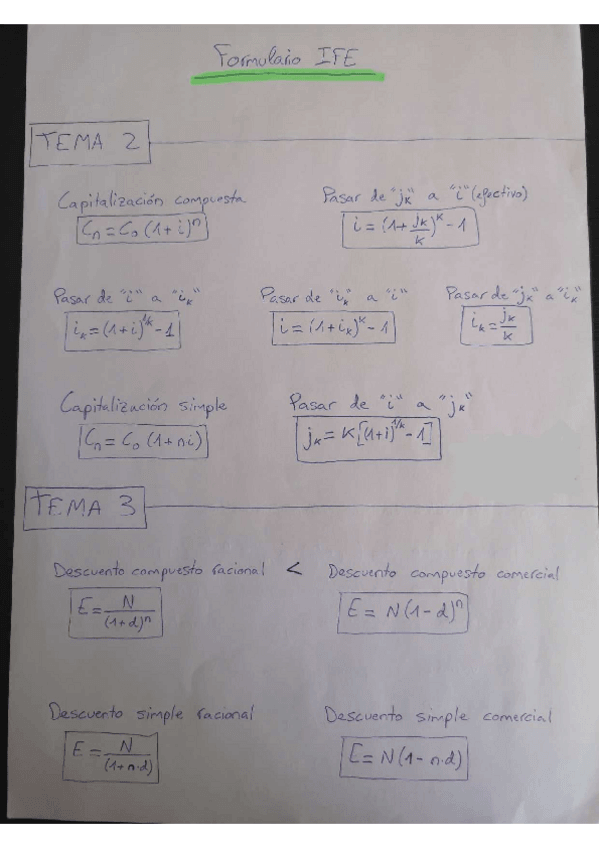 Formulario IFE
TEMA 2
Capitalización compuesta
Cn = Co (1 + i)^n
Pasar de "jk" a "i" (efectivo)
i = (1 + jk/k)^k - 1
Pasar de "i" a "ik"
ik = (1+i)^1/k - 1
Pasar de "ik" a "i"
i = (1 + ik)^k - 1
Pasar de "jk" a "ik"
ik = jk/k
Capitalización simple
Cn = Co (1 + ni)
Pasar de "i" a "jk"
jk = K[(1+i)^1/k - 1]
TEMA 3
Descuento compuesto racional < Descuento compuesto comercial
E = N/(1+d)^n
E = N(1 - d)^n
Descuento simple racional
E = N/(1+n·d)
Descuento simple comercial
E = N(1 - n·d)